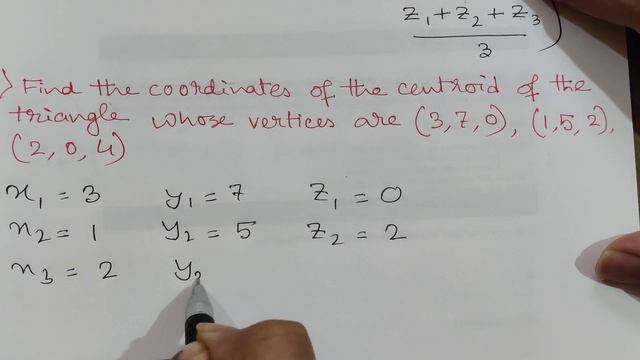 z₁+z₂+z₃
3
) Find the coordinates of the centroid of the
triangle whose vertices are (3,7,0), (1,5,2),
(2, 0, 4)
x₁ = 3 y₁ = 7 z₁ = 0
x₂ = 1 y₂ = 5 z₂ = 2
x₃ = 2 y